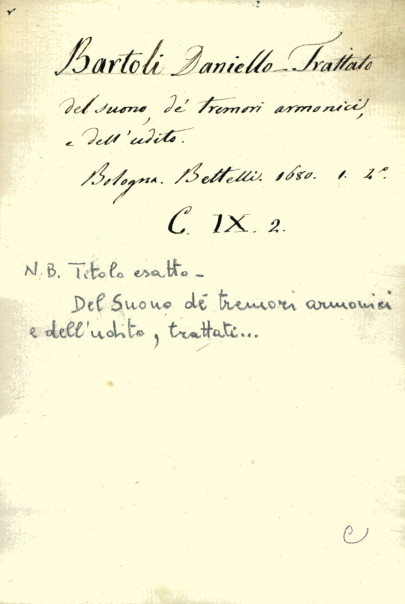 Bartoli Daniello - Trattato
del suono, de' tremori armonici,
e dell'udito.
Bologna. Bettelli. 1680. 1. 4°.
C. IX. 2.
N.B. Titolo esatto -
Del Suono de' tremori armonici
e dell'udito, trattati...
C